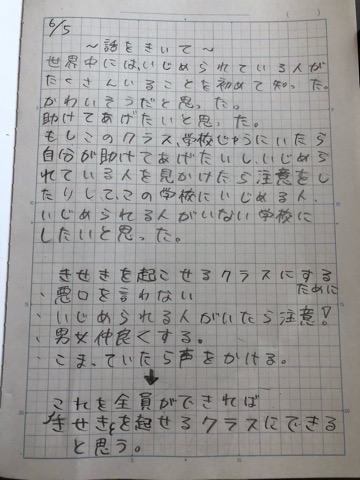 6/5
～話をきいて～
世界中には、いじめられている人が
たくさんいることを初めて知った。
かわいそうだと思った。
助けてあげたいと思った。
もしこのクラス、学校じゅうにいたら
自分が助けてあげたいし、いじめら
れている人を見かけたら注意をし
たりして、この学校にいじめる人、
いじめられる人がいない学校に
したいと思った。
きせきを起こせるクラスにする
ために
・悪口を言わない
・いじめられる人がいたら注意!
・男女仲良くする。
・こまっていたら声をかける。
↓
これを全員ができれば
きせきを起せるクラスにできる
と思う。